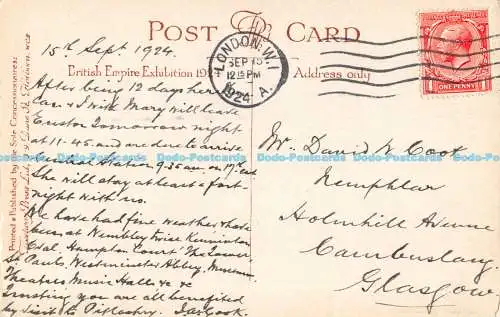 POST CARD
15th Sept. 1924.
British Empire Exhibition 1924
Address only
LONDON. W. 1
SEP 15
12 15 PM
1924 A.
ONE PENNY
After being 12 days here
Car. & I wire Mary will leave
Euston Tomorrow night
at 11-45 and are due to arrive
Central Station 9.35 am. on 17th
She will stay at least a fort-
night with us.
We have had fine weather & have
been at Wembley twice Kennington
Oval. Hampton Court. The Tower
St Pauls, Westminster Abbey, Museum
Theatres Music Halls &c &c
Trusting you are all benefited
by visit to Pitlochry. Jas Cook.
Mr. David W. Cook
Holmhill Avenue
Cambuslang
Glasgow
Printed & Published by the Sole Concessionnaires
Dodo-Postcards Dodo-Postcards Dodo-Postcards Dodo-Postcards